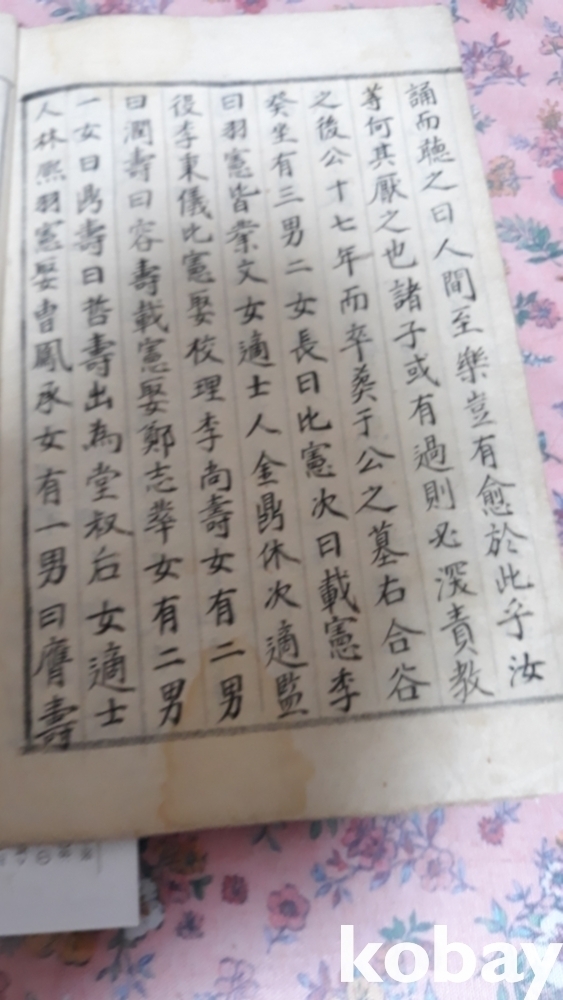 誦而聽之曰人間至樂豈有愈於此乎汝
等何其厭之也諸子或有過則必深責教
之後公十七年而卒葬于公之墓右合谷
癸坐有三男二女長曰比憲次曰載憲季
曰羽憲皆業文女適士人金鼎休次適監
役李東儀比憲娶校理李尚壽女有二男
曰潤壽曰容壽載憲娶鄭志 女有二男
一女曰鼎壽曰 壽出為堂叔后女適士
人林熙羽憲娶曺鳳承女有一男曰膺壽
kobay